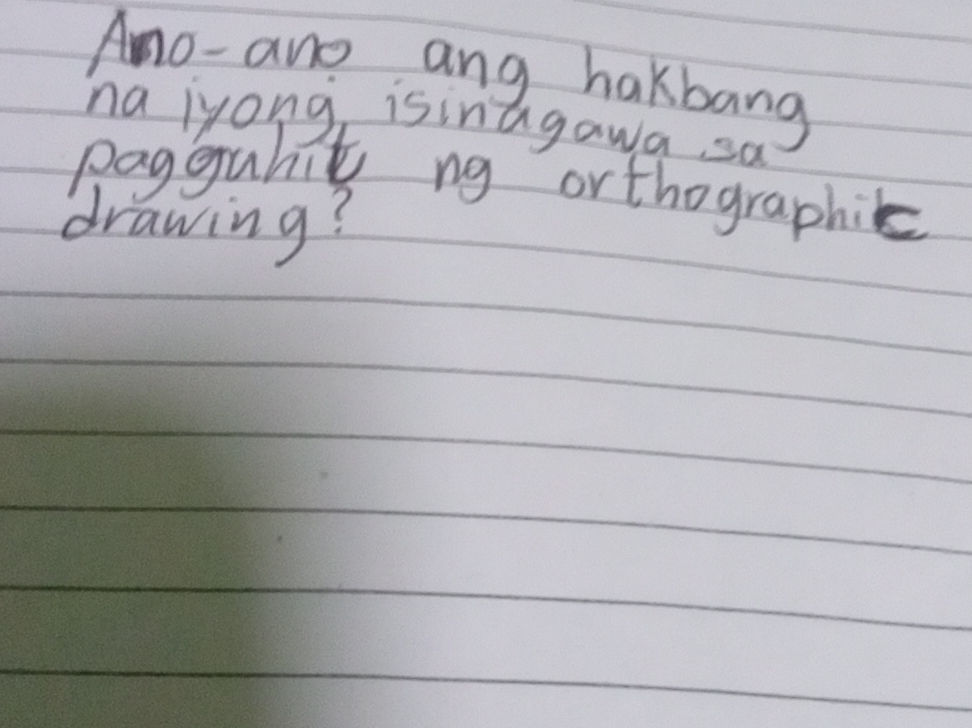 Ano-ano ang hakbang
na iyong isinagawa sa
pagguhit ng orthographic
drawing?